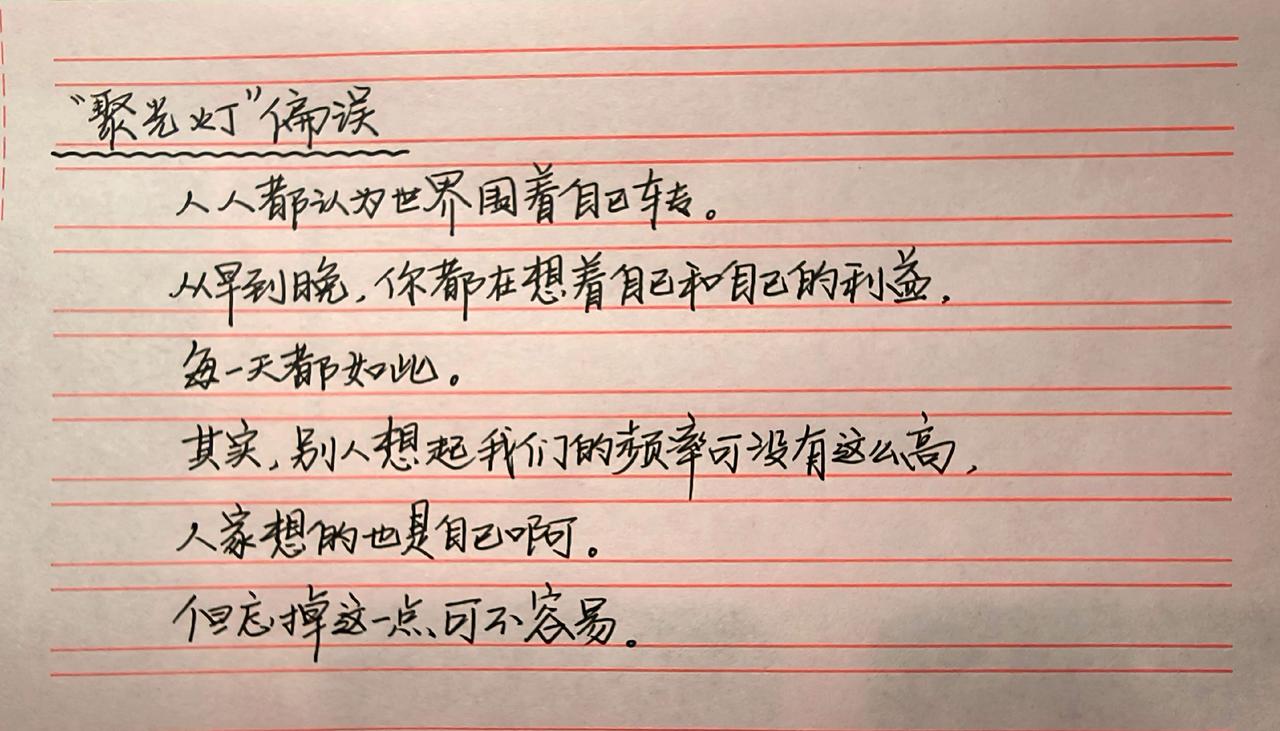 “聚光灯”偏误
人人都认为世界围着自己转。
从早到晚，你都在想着自己和自己的利益，
每一天都如此。
其实，别人想起我们的频率可没有这么高，
人家想的也是自己啊。
但忘掉这一点、可不容易。